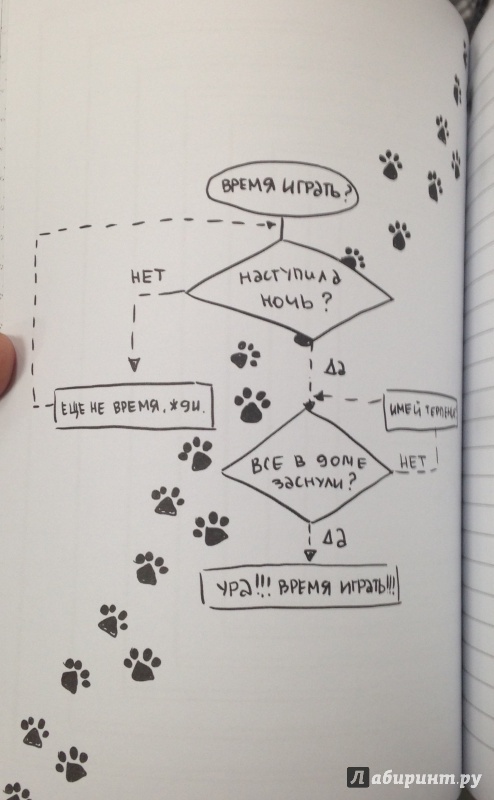 ВРЕМЯ ИГРАТЬ?
НАСТУПИЛА
НОЧЬ?
НЕТ
ДА
ЕЩЕ НЕ ВРЕМЯ, ЖДИ.
ИМЕЙ
ВСЕ В ДОМЕ
ЗАСНУЛИ?
НЕТ
ДА
УРА!!! ВРЕМЯ ИГРАТЬ!!!
Лабиринт.ру